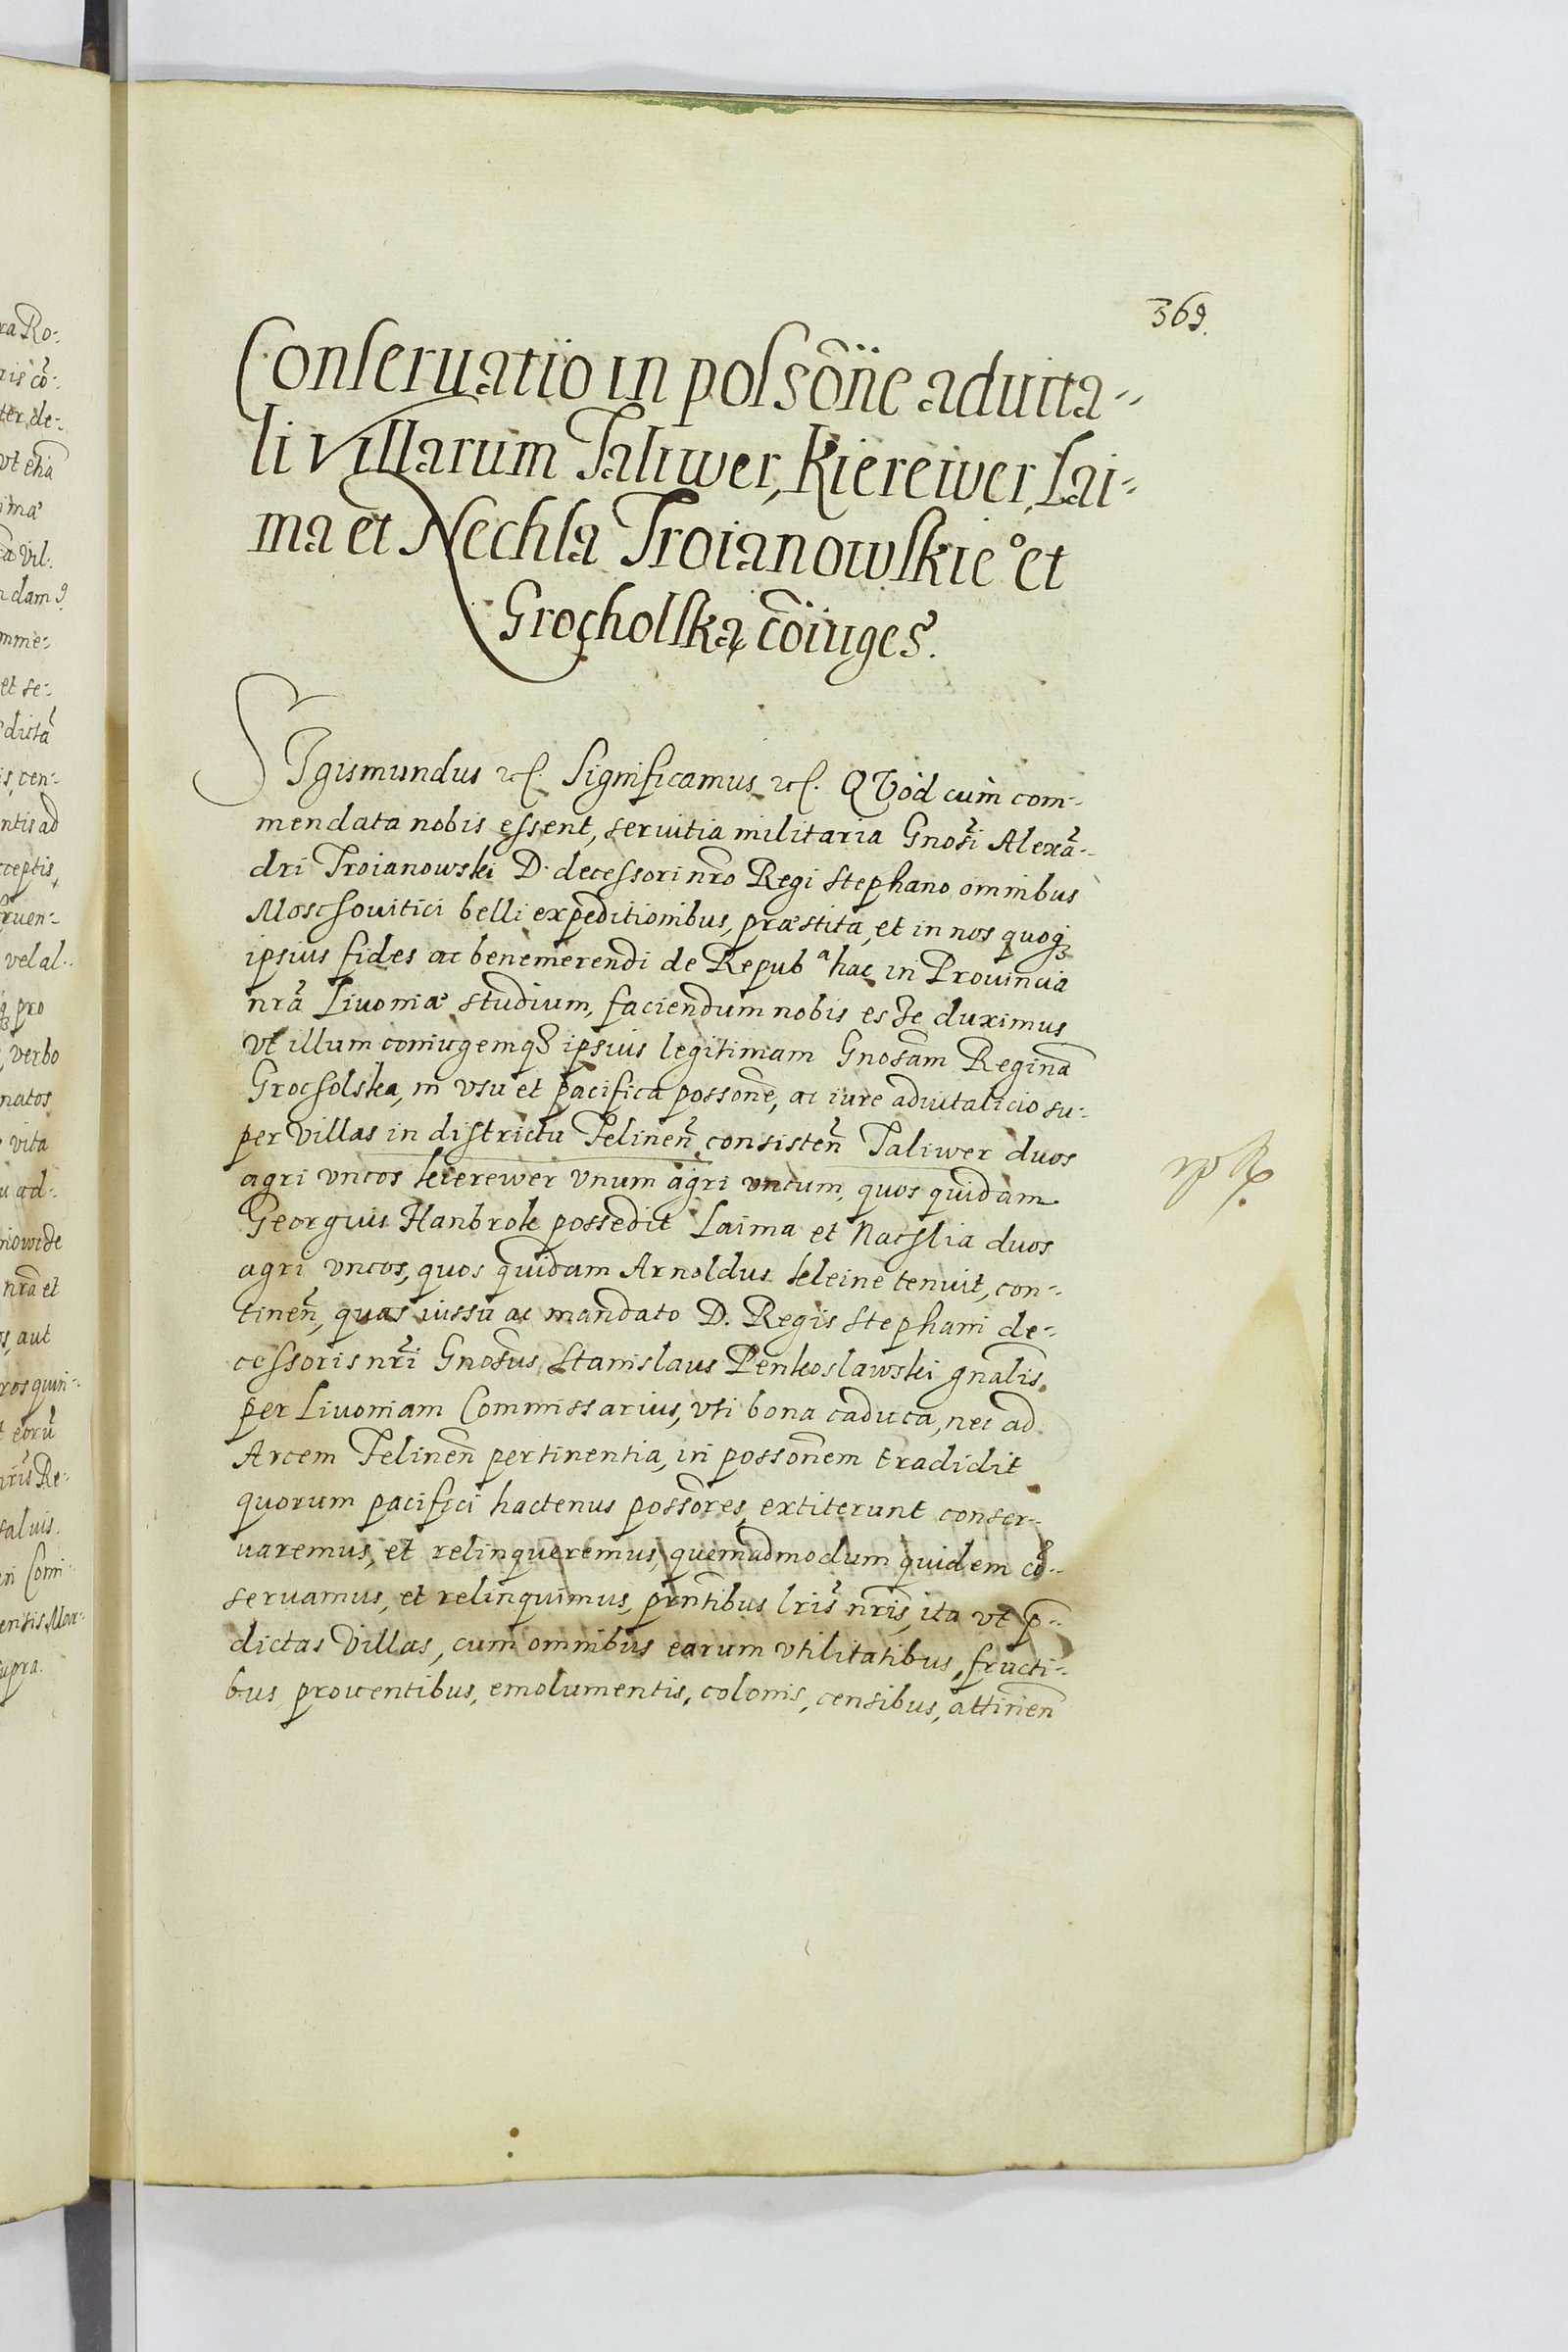 369.
Conseruatio in possõne aduita-
li villarum Taliwer, Kiereiwer, Lai-
ma et Nechla Troianowskieº et
Grocholska cõiuges.
SIgismundus etc. Significamus etc. QVòd cum com-
mendata nobis essent, seruitia militaria Gnosi Alexã-
dri Troianowski D. decessori nro Regi Stephano omnibus
Moschouitici belli expeditionibus, præstita, et in nos quoq3
ipsius fides ac benemerendi de Repubª hac in Prouincia
nrã Livoniæ studium, faciendum nobis esse duximus
vt illum coniugemq3 ipsius legitimam Gnosam Reginã
Grocholska, in vsu et pacifica possone, ac iure aduitalicio su-
per villas in districtu Felineñ consisteñ Taliwer duos
agri vncos kierewer vnum agri vncum, quos quidam
Georgius Hanbrok possedit Laima et Nachlia duos
agri vncos, quos quidam Arnoldus kleine tenuit, con-
tineñ, quas iussu ac mandato D. Regis Stephani de-
cessoris nri Gnosus Stanislaus Penkoslawski gnalis
per Livoniam Commissarius, vti bona caduca, nec ad
Arcem Felineñ pertinentia, in possonem tradidit
quorum pacifici hactenus possores, extiterunt conser-
uaremus, et relinqueremus, quemadmodum quidem cõ-
seruamus, et relinquimus, prntibus lris nris, ita vt p-
dictas villas, cum omnibus earum vtilitatibus, fructi-
bus prouentibus, emolumentis, colonis, censibus, attineñ